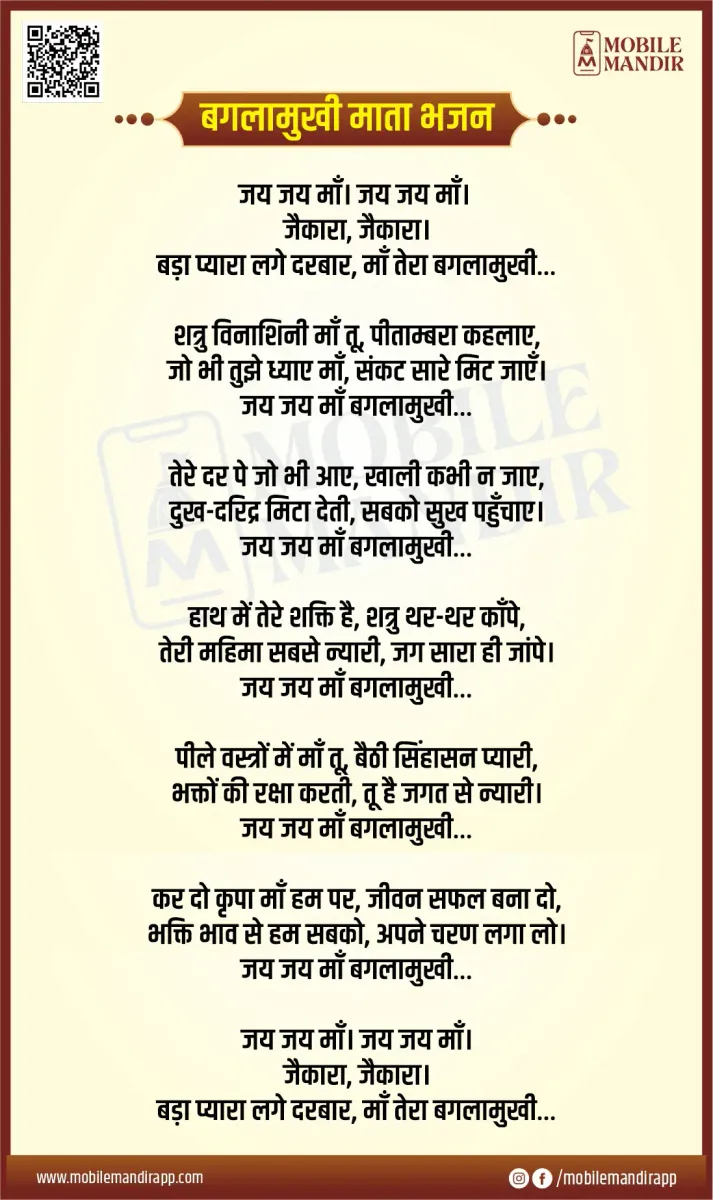 MOBILE
MANDIR
बगलामुखी माता भजन
जय जय माँ। जय जय माँ।
जैकारा, जैकारा।
बड़ा प्यारा लगे दरबार, माँ तेरा बगलामुखी...
शत्रु विनाशिनी माँ तू, पीताम्बरा कहलाए,
जो भी तुझे ध्याए माँ, संकट सारे मिट जाएँ।
जय जय माँ बगलामुखी...
तेरे दर पे जो भी आए, खाली कभी न जाए,
दुख-दरिद्र मिटा देती, सबको सुख पहुँचाए।
जय जय माँ बगलामुखी...
हाथ में तेरे शक्ति है, शत्रु थर-थर काँपे,
तेरी महिमा सबसे न्यारी, जग सारा ही जांपे।
जय जय माँ बगलामुखी...
पीले वस्त्रों में माँ तू, बैठी सिंहासन प्यारी,
भक्तों की रक्षा करती, तू है जगत से न्यारी।
जय जय माँ बगलामुखी...
कर दो कृपा माँ हम पर, जीवन सफल बना दो,
भक्ति भाव से हम सबको, अपने चरण लगा लो।
जय जय माँ बगलामुखी...
जय जय माँ। जय जय माँ।
जैकारा, जैकारा।
बड़ा प्यारा लगे दरबार, माँ तेरा बगलामुखी...
MOBILE
MANDIR
www.mobilemandirapp.com
/mobilemandirapp